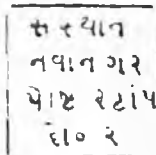 સંસ્થાન
નવાનગર
પોષ્ટ સ્ટાંપ
દો૦ ૨